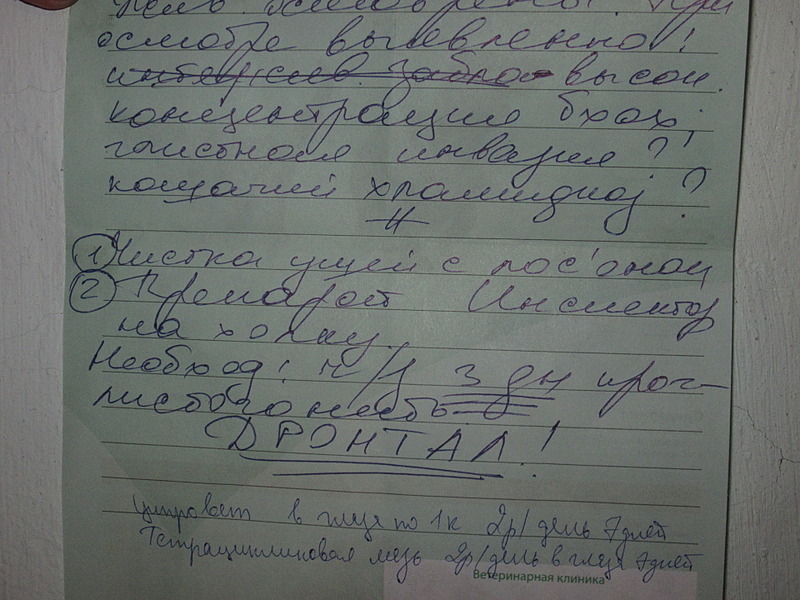 осмотре выявленно!
высок.
концентрация блох,
глистная инвазия ?!
кошачий хламидиоз ?
1 Чистка ушей с лос'оном
2 Препарат Инспектор
на холку.
Необход! ч/з 3 дн прог-
листогонеть
ДРОНТАЛ!
Ципровет в глаза по 1к 2р/день 7дней
Тетрациклиновая мазь 2р/день в глаза 7дней
Ветеринарная клиника